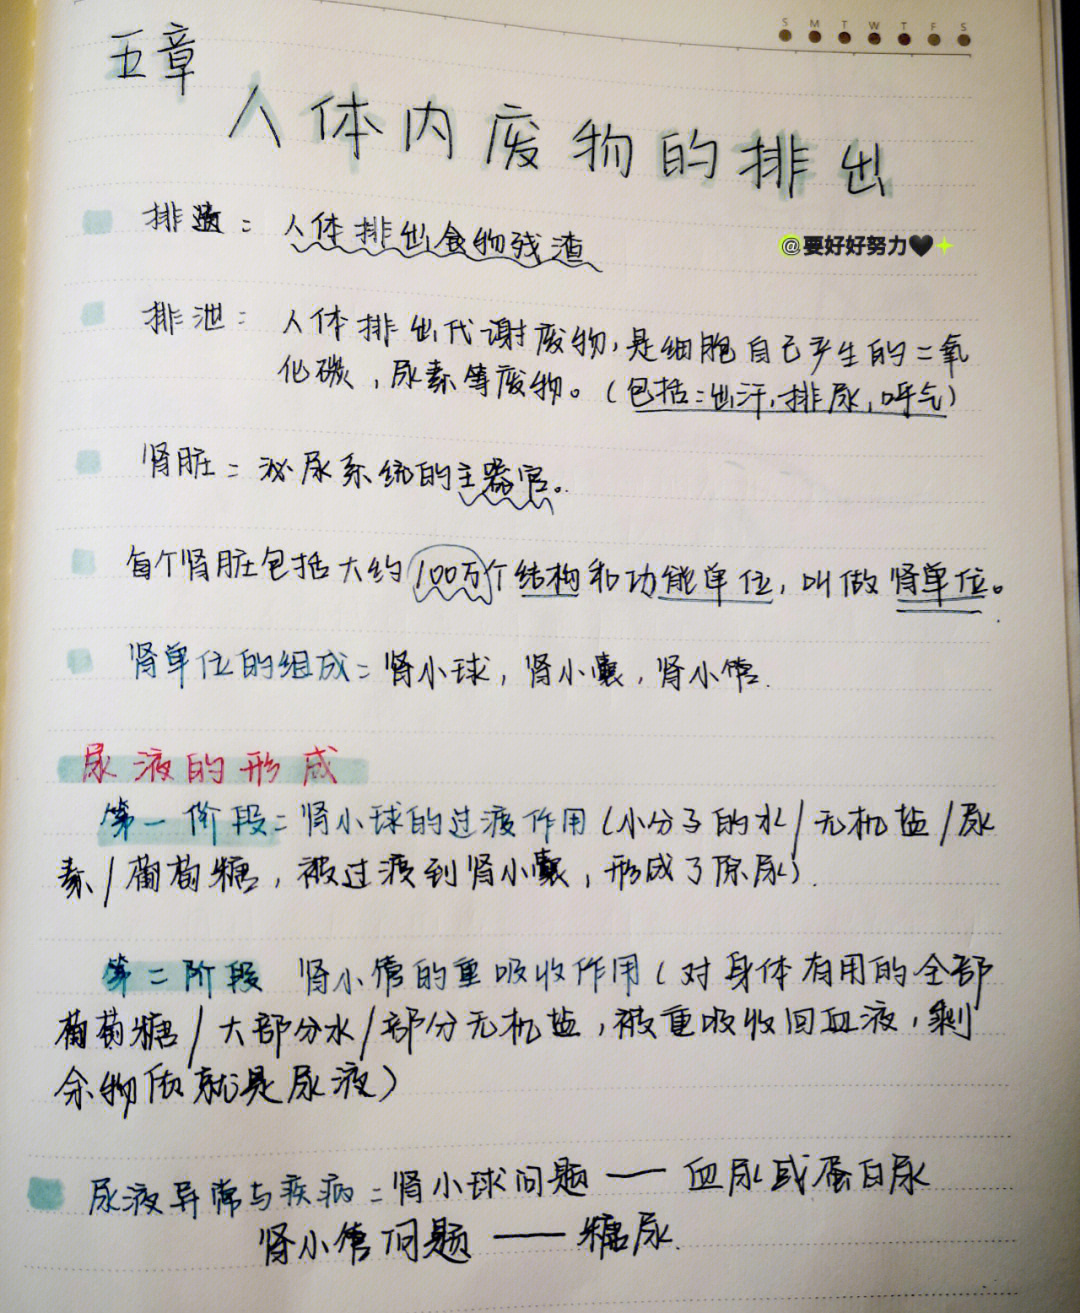 S M T W T F S
五章
人体内废物的排出
排遗：人体排出食物残渣
@要好好努力
排泄：人体排出代谢废物，是细胞自己产生的二氧
化碳，尿素等废物。（包括：出汗，排尿，呼气）
肾脏：泌尿系统的主器官。
每个肾脏包括大约100万个结构和功能单位，叫做肾单位。
肾单位的组成：肾小球，肾小囊，肾小管.
尿液的形成
第一阶段：肾小球的过滤作用（小分子的水/无机盐/尿
素/葡萄糖，被过滤到肾小囊，形成了原尿）.
第二阶段 肾小管的重吸收作用（对身体有用的全部
葡萄糖/大部分水/部分无机盐，被重吸收回血液，剩
余物质就是尿液）
尿液异常与疾病：肾小球问题 —— 血尿或蛋白尿
肾小管问题 —— 糖尿.